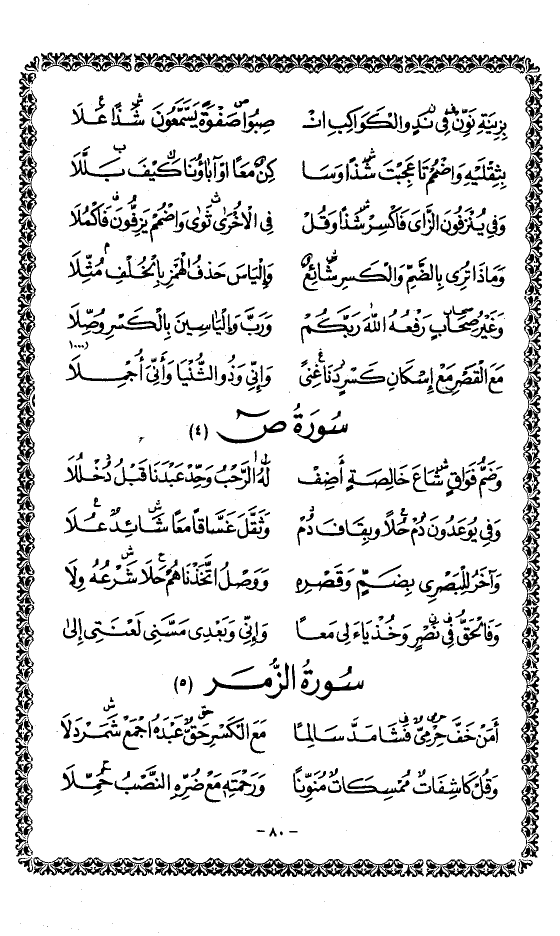 بِزِينَةِ نَوِّنْ فِي نَدٍ وَالْكَوَاكِبِ انْـ صِبُوا صَفْوَةً يَسَّمَّعُونَ شَذًا عَلَا
بِثِقْلَيْهِ وَاضْمُمْ تَا عَجِبْتَ شَذًا وَسَا كِنٌ مَعًا اوْ آبَاؤُنَا كَيْفَ بَلَّلَا
وَفِي يُنْزَفُونَ الزَّايَ فَاكْسِرْ شَذًا وَقُلْ فِي الْأُخْرَى ثَوَى وَاضْمُمْ يَزِفُّونَ فَاكْمُلَا
وَمَاذَا تُرِي بِالضَّمِّ وَالْكَسْرِ شَائِعٌ وَإِلْيَاسَ حَذْفُ الْهَمْزِ بِالْخُلْفِ مُثِّلَا
وَغَيْرُ صِحَابٍ رَفْعُهُ اللَّهُ رَبُّكُمْ وَرَبُّ وَإِلْيَاسِينَ بِالْكَسْرِ وُصِّلَا
مَعَ الْقَصْرِ مَعْ إِسْكَانِ كَسْرٍ دَنَا غِنًى وَإِنِّي وَذُو الثُّنْيَا وَأَنِّي أُجْمِلَا
سُورَةُ صۤ (٤)
وَضَمُّ فَوَاقٍ شَاعَ خَالِصَةٍ أَضِفْ لَهُ الرَّحْبُ وَحِّدْ عَبْدَنَا قَبْلُ دُخْلُلَا
وَفِي يُوعَدُونَ دُمْ حُلًا وَبِقَافَ دُمْ وَثَقَّلَ غَسَّاقًا مَعًا شَائِدٌ عُلَا
وَآخَرُ لِلْبَصْرِي بِضَمٍّ وَقَصْرِهِ وَوَصْلُ اتَّخَذْنَاهُمْ حَلَا شَرْعُهُ وِلَا
وَفَالْحَقُّ فِي نَصْرٍ وَخُذْ يَاءَ لِي مَعًا وَإِنِّي وَبَعْدِي مَسَّنِي لَعْنَتِي إِلَى
سُورَةُ الزُّمَر (٥)
أَمَنْ خَفَّ حِرْمِيٌّ فَشَا مَدَّ سَالِمًا مَعَ الْكَسْرِ حَقٌّ عَبْدَهُ اجْمَعْ شَمَرْدَلَا
وَقُلْ كَاشِفَاتٌ مُمْسِكَاتٌ مُنَوِّنًا وَرَحْمَتِهِ مَعْ ضُرِّهِ النَّصْبُ حُمِّلَا
- ٨٠ -